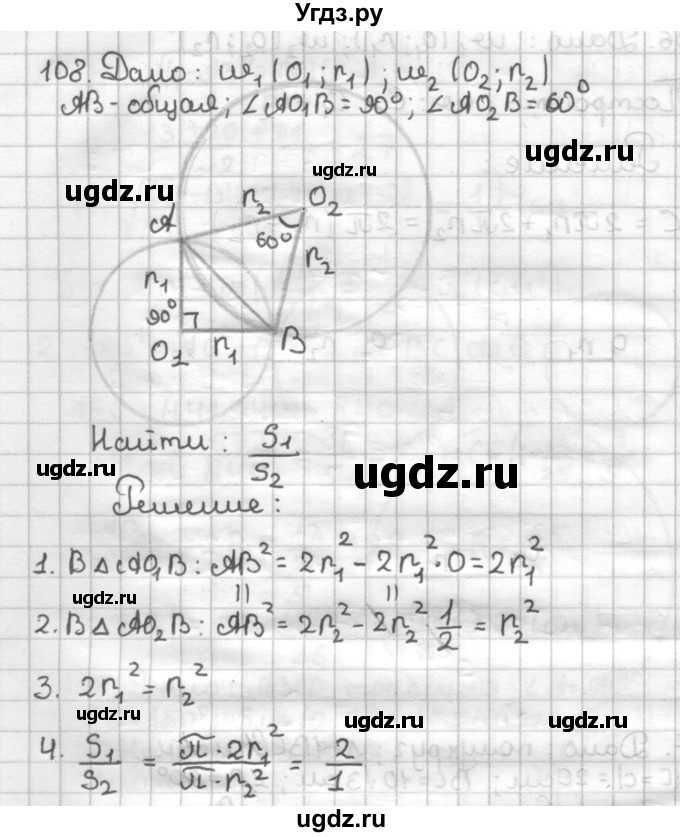 Угдз.ру
108. Дано: w₁ (O₁; r₁); w₂ (O₂; r₂)
AB-общая; ∠AO₁B = 90°; ∠AO₂B = 60°
ugdz.ru
ugdz.ru
ugdz.ru
A r₂ O₂
60°
r₂
r₁
90°
O₁ r₁ B
Найти: S₁/S₂
ugdz.ru
ugdz.ru
Решение:
1. В △AO₁B: AB² = 2r₁² - 2r₁² · 0 = 2r₁²
ugdz.ru
ugdz.ru
2. В △AO₂B: AB² = 2r₂² - 2r₂² · 1/2 = r₂²
3. 2r₁² = r₂²
ugdz.ru
ugdz.ru
ugdz.ru
4. S₁/S₂ = π · 2r₁²/π · r₂² = 2/1
ugdz.ru
ugdz.ru